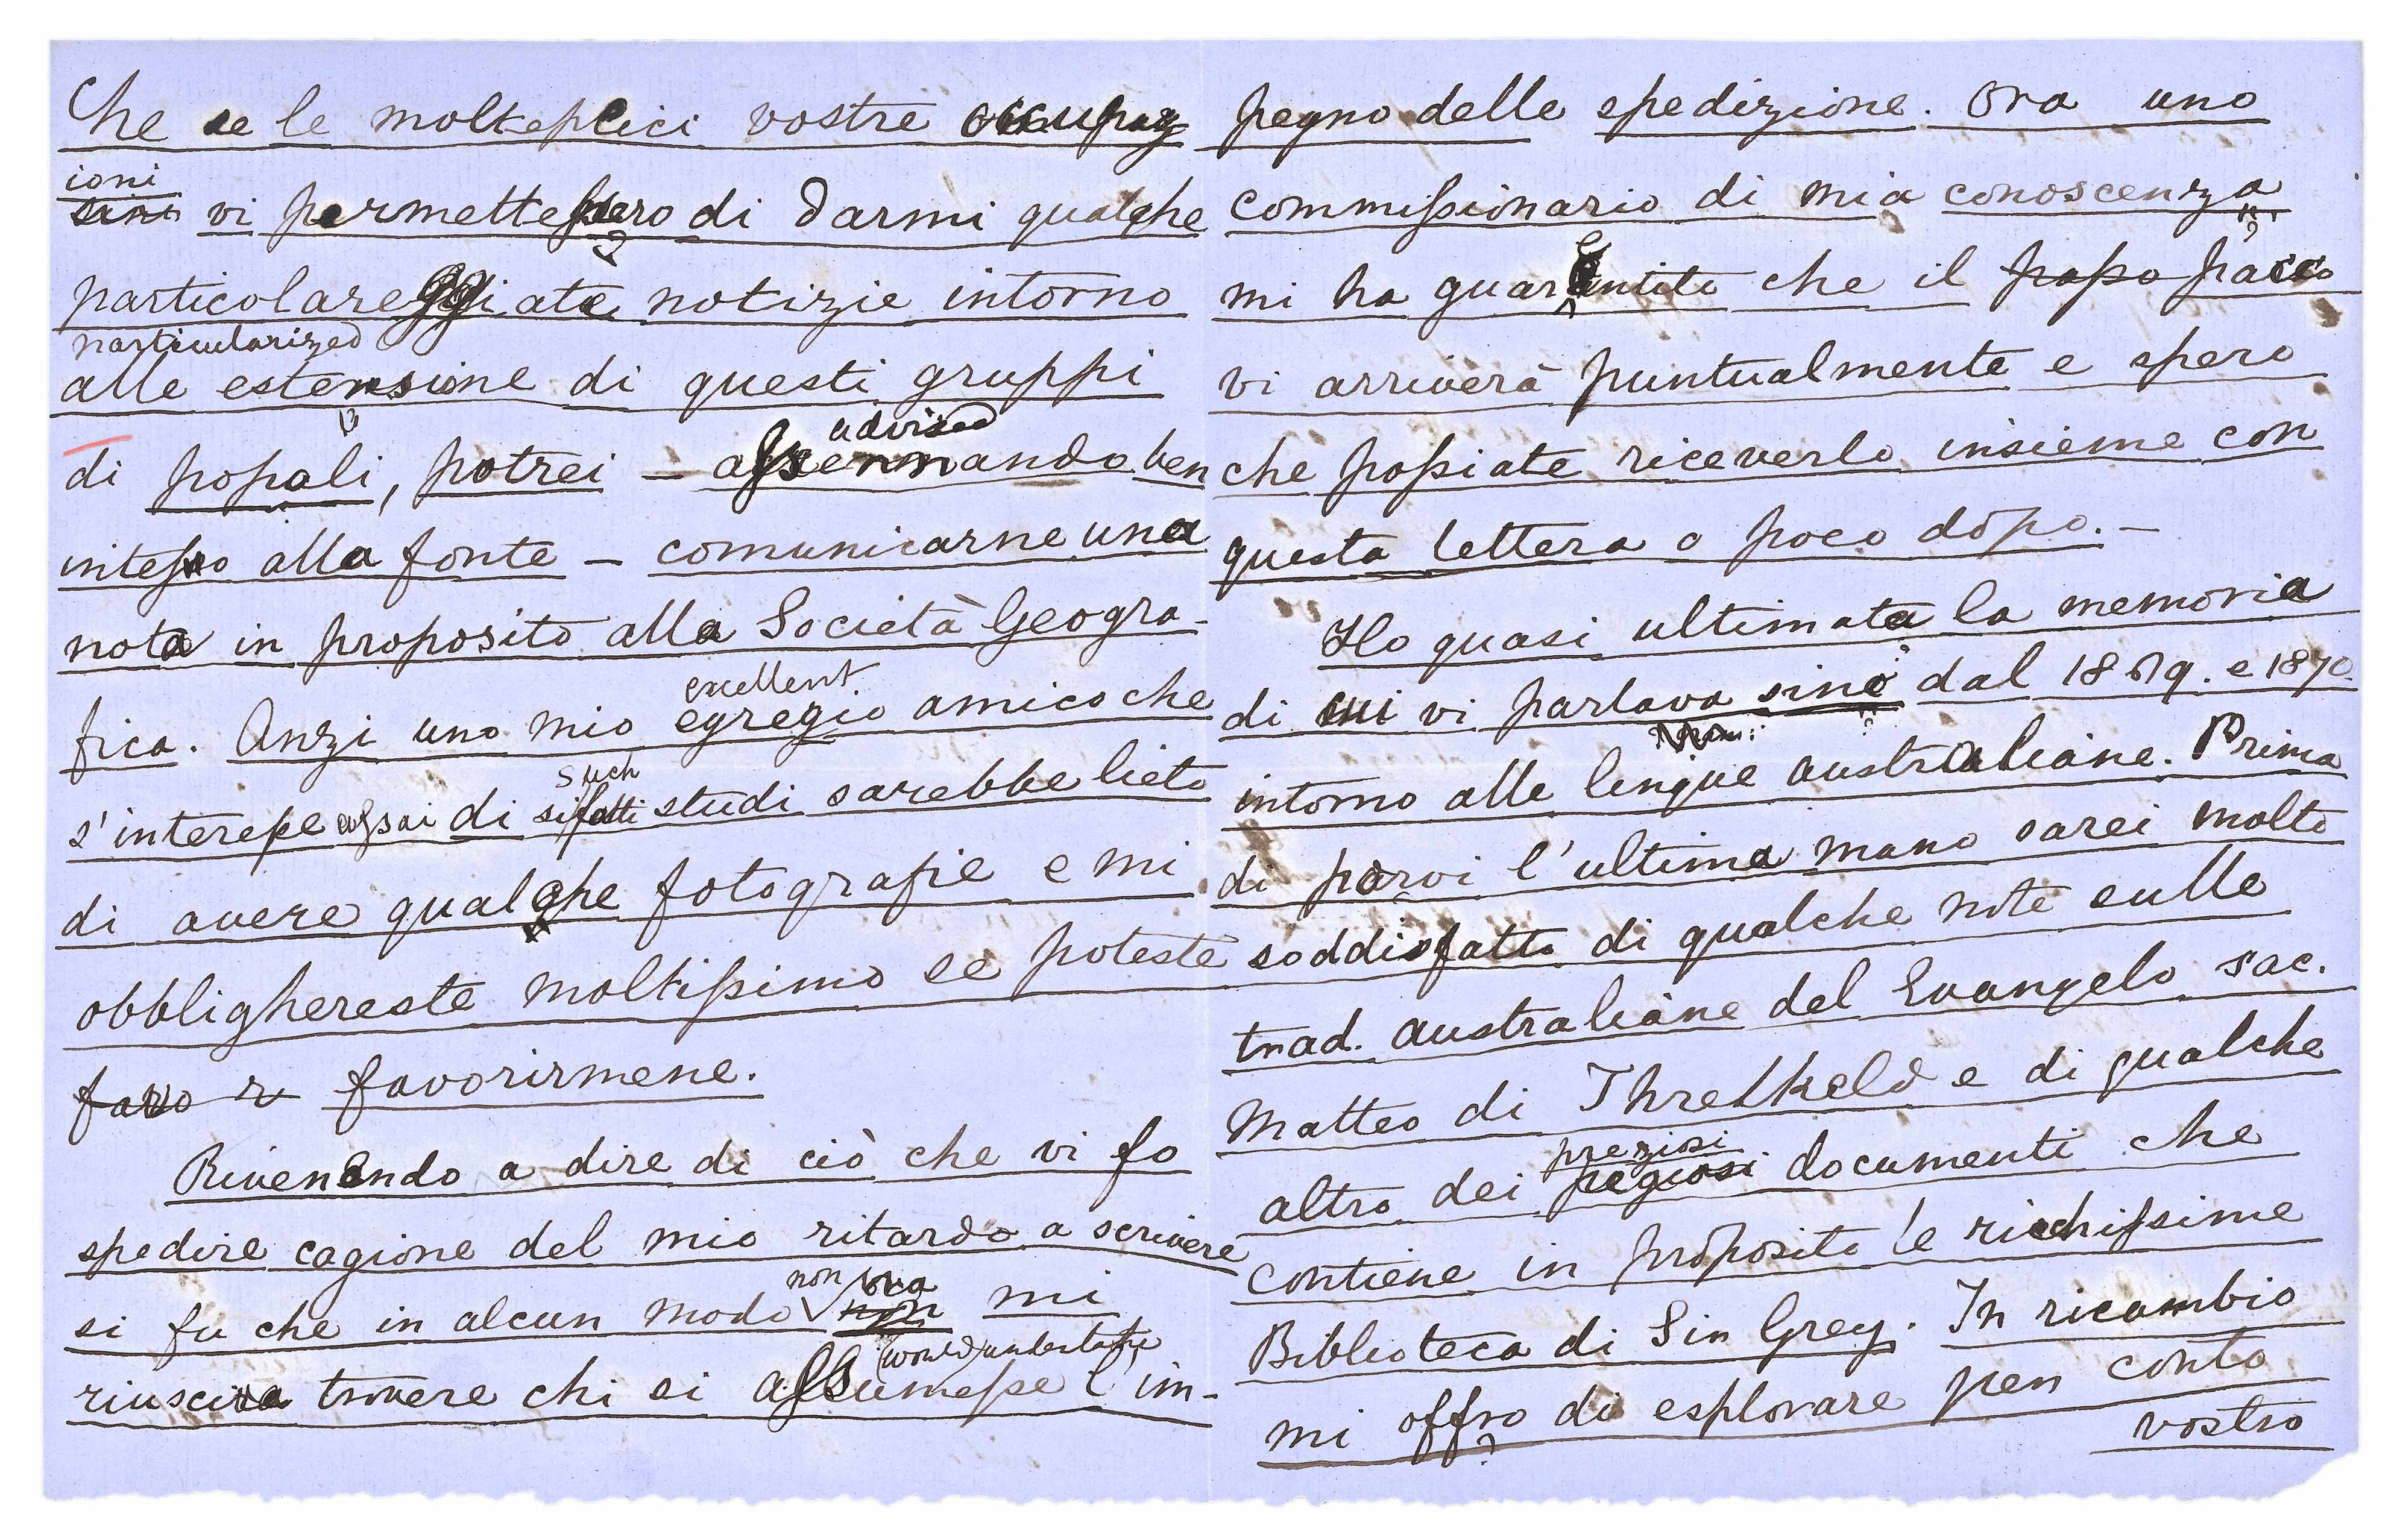 Che se le molteplici vostre occupaz
ioni
vi permettessero di darmi qualche
particolareggiate notizie intorno
particularized
alle estensione di questi gruppi
advised
di popoli, potrei — assennando ben
inteso alla fonte — comunicarne una
nota in proposito alla Società Geogra-
excellent
fica. Anzi uno mio egregio amico che
such
s'interesse assai di sifatti studi sarebbe lieto
di avere qualche fotografie e mi
obblighereste moltissimo se poteste
favo r favorirmene.
Rivenendo a dire di ciò che vi fo
spedire cagione del mio ritardo a scrivere
non
si fu che in alcun modo non mi
(would) undertake
riusciva trovere chi si assumesse l'im-
pegno delle spedizione. Ora uno
commissionario di mia conoscenza
mi ha guarentito che il passo pacco
vi arriverà puntualmente e spero
che possiate riceverlo insieme con
questa lettera o poco dopo. —
Ho quasi ultimata la memoria
di cui vi parlava sino dal 1869. e 1870.
intorno alle lingue australiane. Prima
di porvi l'ultima mano sarei molto
soddisfatto di qualche note sulle
trad. australiane del Evangelo sac.
Matteo di Threlkeld e di qualche
preziosi
altro dei pegiosi documenti che
contiene in proposito le richissime
Biblioteca di Sir Grey. In ricambio
mi offro di esplorare per conto
vostro